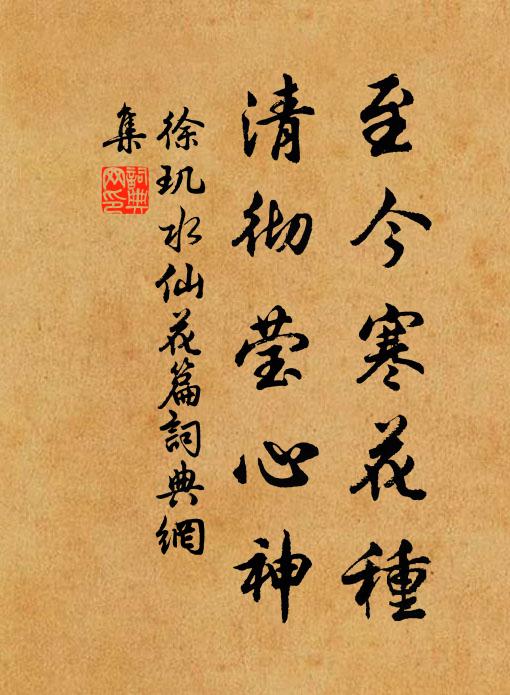 至今寒花種
清彻莹心神
徐玑水仙花篇詞典網
集
詞典网印